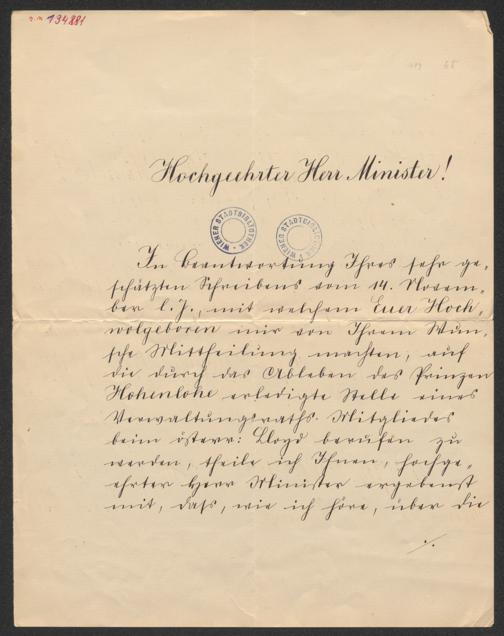 I.N. 194.881
68
Hochgeehrter Herr Minister!
WIENER STADTBIBLIOTHEK
WIENER STADTBIBLIOTHEK
In Beantwortung Ihres sehr ge-
schätzten Schreibens vom 14. Novem-
ber l. J., mit welchem Euer Hoch,
wolgeboren mir von Ihrem Wun-
sche Mittheilung machten, auf
die durch das Ableben des Prinzen
Hohenlohe erledigte Stelle eines
Verwaltungsraths-Mitgliedes
beim österr: Lloyd berufen zu
werden, theile ich Ihnen, hochge-
ehrter Herr Minister ergebenst
mit, dass, wie ich höre, über die
./.